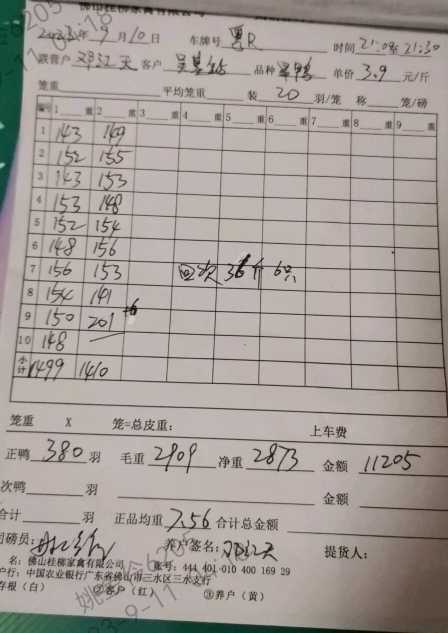 佛山桂柳家禽有限公司
2023年9月10日 车牌号 粤R 时间 21:08至21:30
联营户 邓江天 客户 品种 单价 3.9 元/斤
笼重 平均笼重 装 20 羽/笼 称 笼/磅
编号 1 重 2 重 3 重 4 重 5 重 6 重 7 重 8 重 9 重
1 143 149
2 152 155
3 143 153
4 153 148
5 152 154
6 148 156
7 156 153 回次 36斤 6只
8 154 141
9 150 201 +6
10 148
小计 1499 1410
笼重 X 笼=总皮重: 上车费
正鸭 380 羽 毛重 2909 净重 2873 金额 11205
次鸭 羽 金额
合计 羽 正品均重 7.56 合计总金额
司磅员: 养户签名: 邓江天 提货人:
名: 佛山桂柳家禽有限公司 账号: 444 401 010 400 169 29
户行: 中国农业银行广东省佛山市三水区三水支行
存根（白） ②客户（红） ③养户（黄）